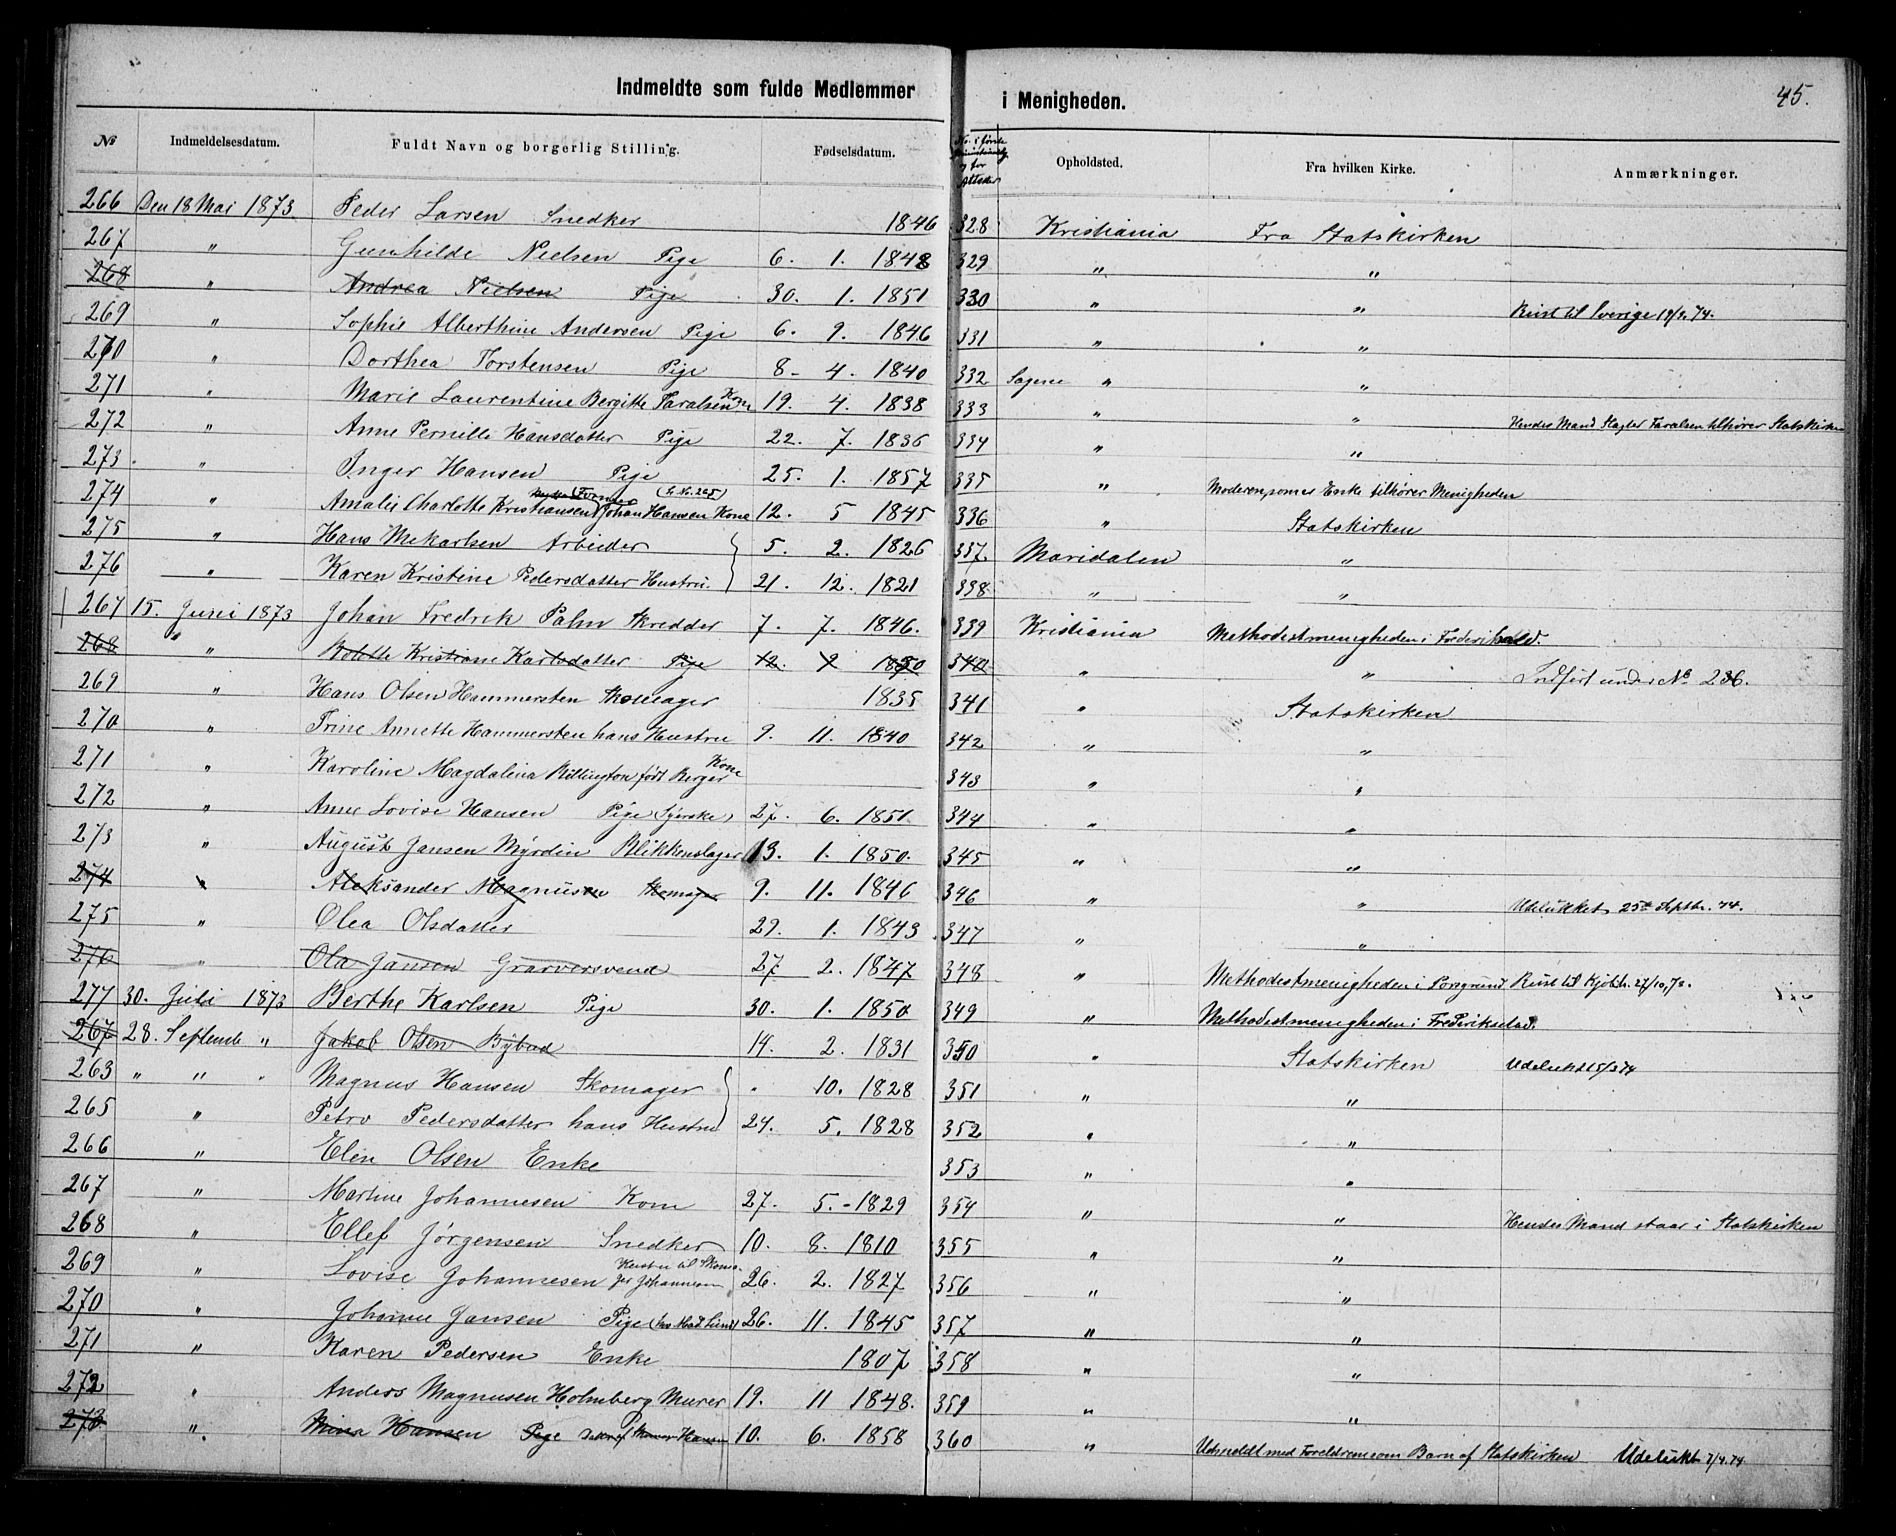 Indmeldte som fulde Medlemmer i Menigheden. 45.
№ Indmeldelsesdatum. Fuldt Navn og borgerlig Stilling. Fødselsdatum. Opholdsted. Fra hvilken Kirke. Anmærkninger.
266 Den 18 Mai 1873 Peder Larsen Snedker 1846 328 Kristiania Fra Statskirken
267 " Gunhilde Nielsen Pige 6. 1. 1848 329 " "
268 " Andrea Nielsen Pige 30. 1. 1851 330 " " Reist til Sverige 19/9.74.
269 " Sophie Alberthine Andersen Pige 6. 9. 1846 331 " "
270 " Dorthea Torstensen Pige 8. 4. 1840 332 Sagene " "
271 " Marie Laurentine Bergitte Taralsen Kone 19. 4. 1838 333 " " Hendes Mand Slagter Taralsen tilhører Statskirken
272 " Anne Pernille Hansdatter Pige 22. 7. 1836 334 " "
273 " Inger Hansen Pige 25. 1. 1857 335 " Moderen, somes Enke tilhører Menigheden
274 " Amalie Charlotte Kristiansen Johan Hansen Kone 12. 5 1845 336 " Statskirken
275 " Hans Mekarlsen Arbieder 5. 2. 1826 337. Maridalen "
276 " Karen Kristine Pedersdatter Hustru. 21. 12. 1821 338 " "
267 15. Juni 1873 Johan Fredrik Palm Skredder 7. 7. 1846. 339 Kristiania Methodestmenigheden i Frederikshald.
268 " Bolette Kristiane Karlsdatter Pige 12. 9 1850 340 " " Indført under № 236.
269 " Hans Olsen Hammersten Skomager 1835 341 " Statskirken
270 " Trine Annette Hammersten hans Hustru 9. 11. 1840 342 " "
271 " Karoline Magdalina Billington født Berger Kone 343 " "
272 " Anne Lovise Hansen Pige (Syerske) 27. 6. 1851. 344 " "
273 " August Jansen Myrdin Blikkenslager 13. 1. 1850. 345 " "
274 " Aleksander Magnusen Skomager 9. 11. 1846 346 " " Udelukket 25de Septbr. 74.
275 " Olea Olsdatter 29. 1. 1843 347 " "
276 " Ola Jansen Garversvend 27 2. 1847 348 " Methodestmenigheden i Porsgrund Reist til Kjøbh. 27/10,73.
277 30. Juli 1873 Berthe Karlsen Pige 30. 1. 1850 349 " Methodestmenigheden i Frederikstad.
267 28. Septembr " Jakob Olsen Bybud 14. 2. 1831 350 " Statskirken Udelukt 15/3 74
263 " " " Magnus Hansen Skomager . 10. 1828 351 " "
265 " Petro Pedersdatter hans Hustru 24. 5. 1828 352 " "
266 " Elen Olsen Enke 353 " "
267 " Martine Johannesen Kone 27. 5. 1829 354 " " Hendes Mand staar i Statskirken
268 " Ellef Jørgensen Snedker 10. 8. 1810 355 " "
269 " Lovise Johannesen Hustru til Skomager Johannesen 26. 2. 1827 356 " "
270 " Johanne Jansen Pige (hos Mad Lund) 26. 11. 1845 357 " "
271 " Karen Pedersen Enke 1807 358 " "
272 " Anders Magnusen Holmberg Murer 19. 11 1848. 359 " "
273 " Mina Hansen Pige Datter af Skomager Hansen 10. 6. 1858 360 " Udmeldt med Foreldrene som Barn af Statskirken Udelukt 7/4.74